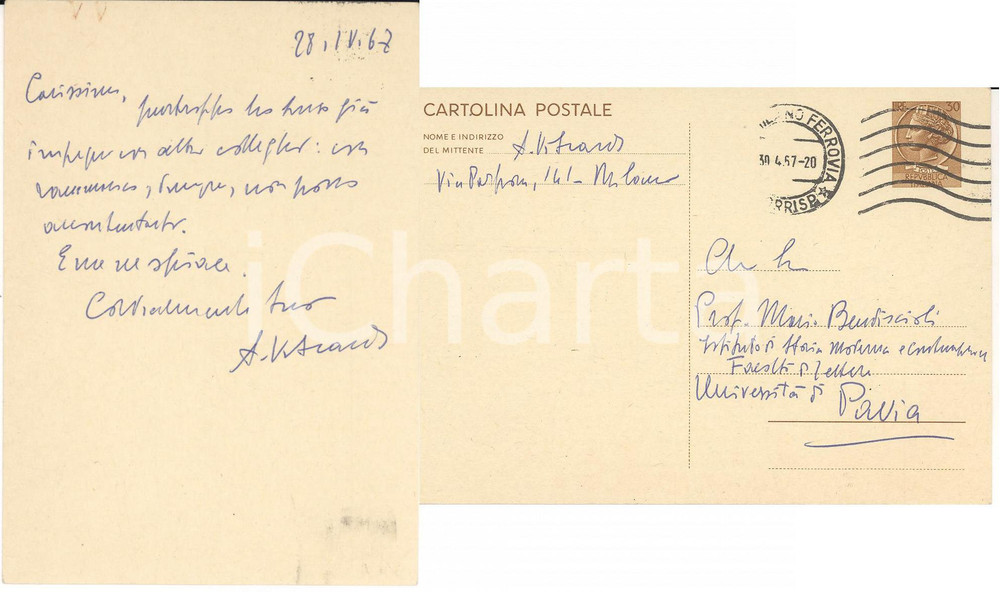 28.IV.67
Carissimo,
purtroppo ho preso già
impegni con altri colleghi: con
rammarico, dunque, non posso
accontentarti.
E me ne spiace.
Cordialmente tuo
A.
CARTOLINA POSTALE
NOME E INDIRIZZO
DEL MITTENTE
A.
141 - Milano
MILANO FERROVIA
30.4.67-20
CORRISP.
30
REPVBBLICA
ITALIANA
Ch. mo
Prof. Mario Bendiscioli
Istituto di Storia Moderna e Contemporanea
Facoltà di Lettere
Università di
Pavia
iCharta